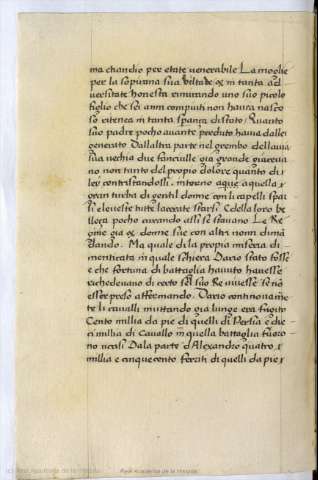 ma chandio per etate venerabile La moglie
per la soprana sua beltade et in tanta ad
versitate honesta rimirando uno suo picolo
figlio che sei anni computi non havea nasco
so eitenea in tanta speranza di stato Quanto
suo padre pocho avante perduto havia dalle
generato Dallaltra parte nel grembo dellavia
sua vechia due fanciulle gia grande giaceva
no non tanto del proprio dolore quanto di
lei contristandossi intorno aque aquella
gran turba di gentil donne con li capelli spar
si e levesti tutte lacerate starsi E della loro be
lleza pocho curando assi se stavano Le Re
gine gia et donne sue con altri nomi dima
ndando Ma quale di la propia miseria di
menticata in quale schiera Dario stato fosse
e che fortuna di battaglia havuto havesse
richedevano di certo sel suo Re vivesse se nõ
esser preso affermando Dario continovame
te li cavalli mutando gia lunge era fugito
Cento milia da pie di quelli di Persia e die
ci milia di Cavallo in quella battaglia fuoro
no ucisi Dala parte d Alexandro quatro
milia e cinquecento feriti di quelli da pie
(c) Real Academia de la Historia
Real Academia de la Historia